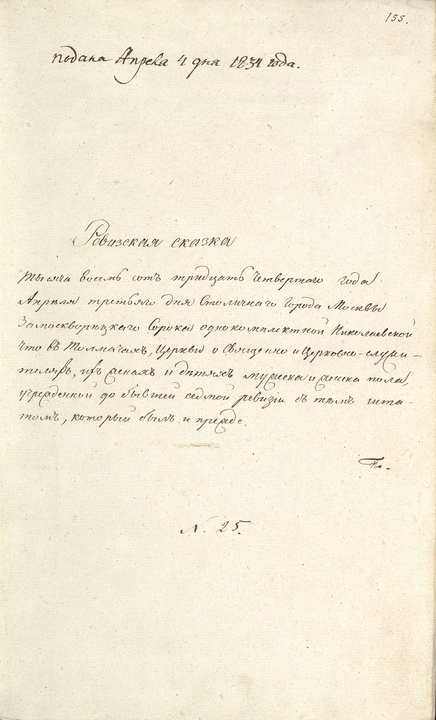 155.
подана Апреля 4 дня 1834 года.
Ревизская сказка
тысяча восемь сотъ тридцать четвертаго года
Апреля третьяго дня Столичнаго Города Москвы
Замоскворѣцкаго Сорока однокомплектной Николаевской
что въ Толмачахъ, Церкви о Священно и Церковно-служи-
теляхъ, ихъ женахъ и дѣтяхъ мужеска и женска пола,
учрежденной до бывшей седмой ревизіи въ томъ шта-
томъ, который былъ и прежде.
N. 25.